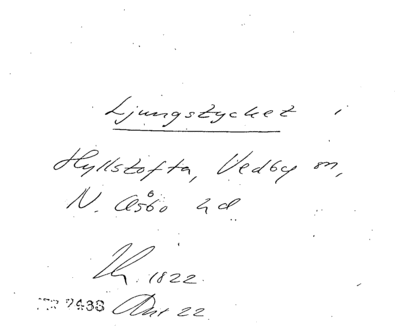 Ljungstycket i
Hyllstofta, Vedby sn,
N. Åsbo hd
1822
7438 22